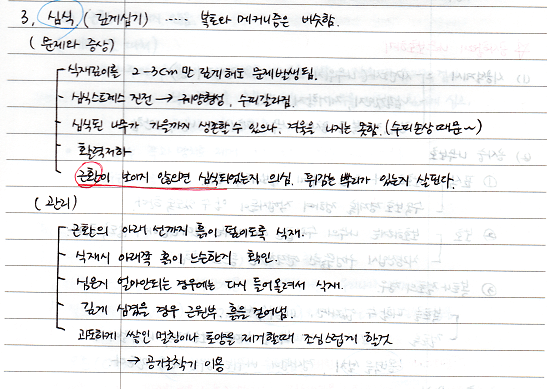 3. 심식. (깊게심기) ..... 복토와 메커니즘은 비슷함.
(문제와 증상)
식재깊이를 2-3cm만 깊게해도 문제발생됨.
심식스트레스 진전 → 궤양형성, 수피갈라짐.
심식된 나무가 가을까지 생존할 수 있으나, 겨울을 나기는 못함. (수피손상 때문~)
활력저하
근원이 보이지 않으면 심식되었는지 의심. 휘감는 뿌리가 있는지 살핀다.
(관리)
근원의 아래 선까지 흙이 덮이도록 식재.
식재시 아래쪽 흙이 느슨하기 확인.
심은지 얼마안되는 경우에는 다시 들어올려서 식재.
깊게 심겼을 경우 근원부 흙을 걷어냄.
과도하게 쌓인 멀칭이나 토양을 제거할때 조심스럽게 할것
→ 공기굴착기 이용